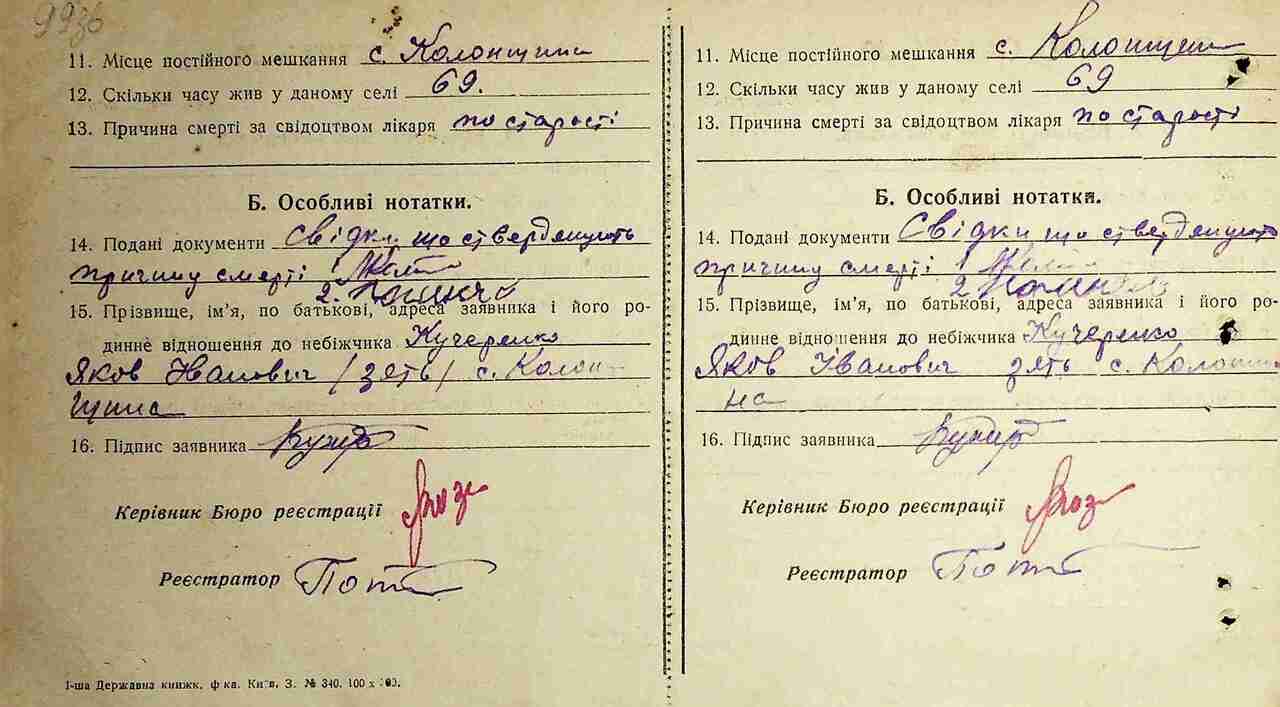 9936
11. Місце постійного мешкання с. Колонщина
12. Скільки часу жив у даному селі 69.
13. Причина смерті за свідоцтвом лікаря по старості
Б. Особливі нотатки.
14. Подані документи Свідки що ствердюють
причину смерті 1
2.
15. Прізвище, ім'я, по батькові, адреса заявника і його ро-
динне відношення до небіжчика Кучеренко
Яков Іванович (зять) с. Колон-
щина
16. Підпис заявника
Керівник Бюро реєстрації
Реєстратор
1-ша Державна книжк. ф-ка. Київ. З. № 340. 100 х 100.
11. Місце постійного мешкання с. Колонщина
12. Скільки часу жив у даному селі 69
13. Причина смерті за свідоцтвом лікаря по старості
Б. Особливі нотатки.
14. Подані документи Свідки що ствердюють
причину смерті 1
2
15. Прізвище, ім'я, по батькові, адреса заявника і його ро-
динне відношення до небіжчика Кучеренко
Яков Іванович зять с. Колонщи
на
16. Підпис заявника
Керівник Бюро реєстрації
Реєстратор